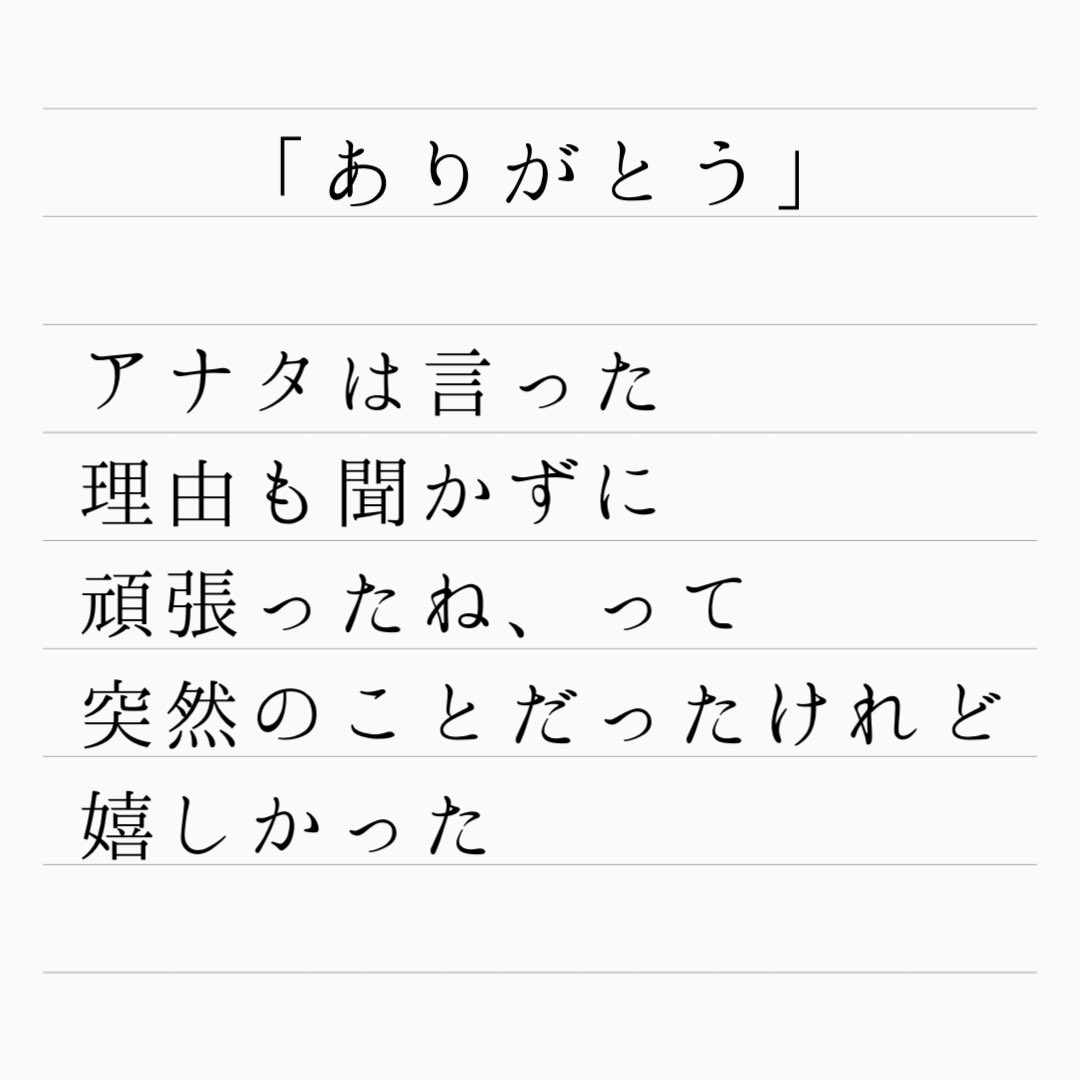 「ありがとう」
アナタは言った
理由も聞かずに
頑張ったね、って
突然のことだったけれど
嬉しかった